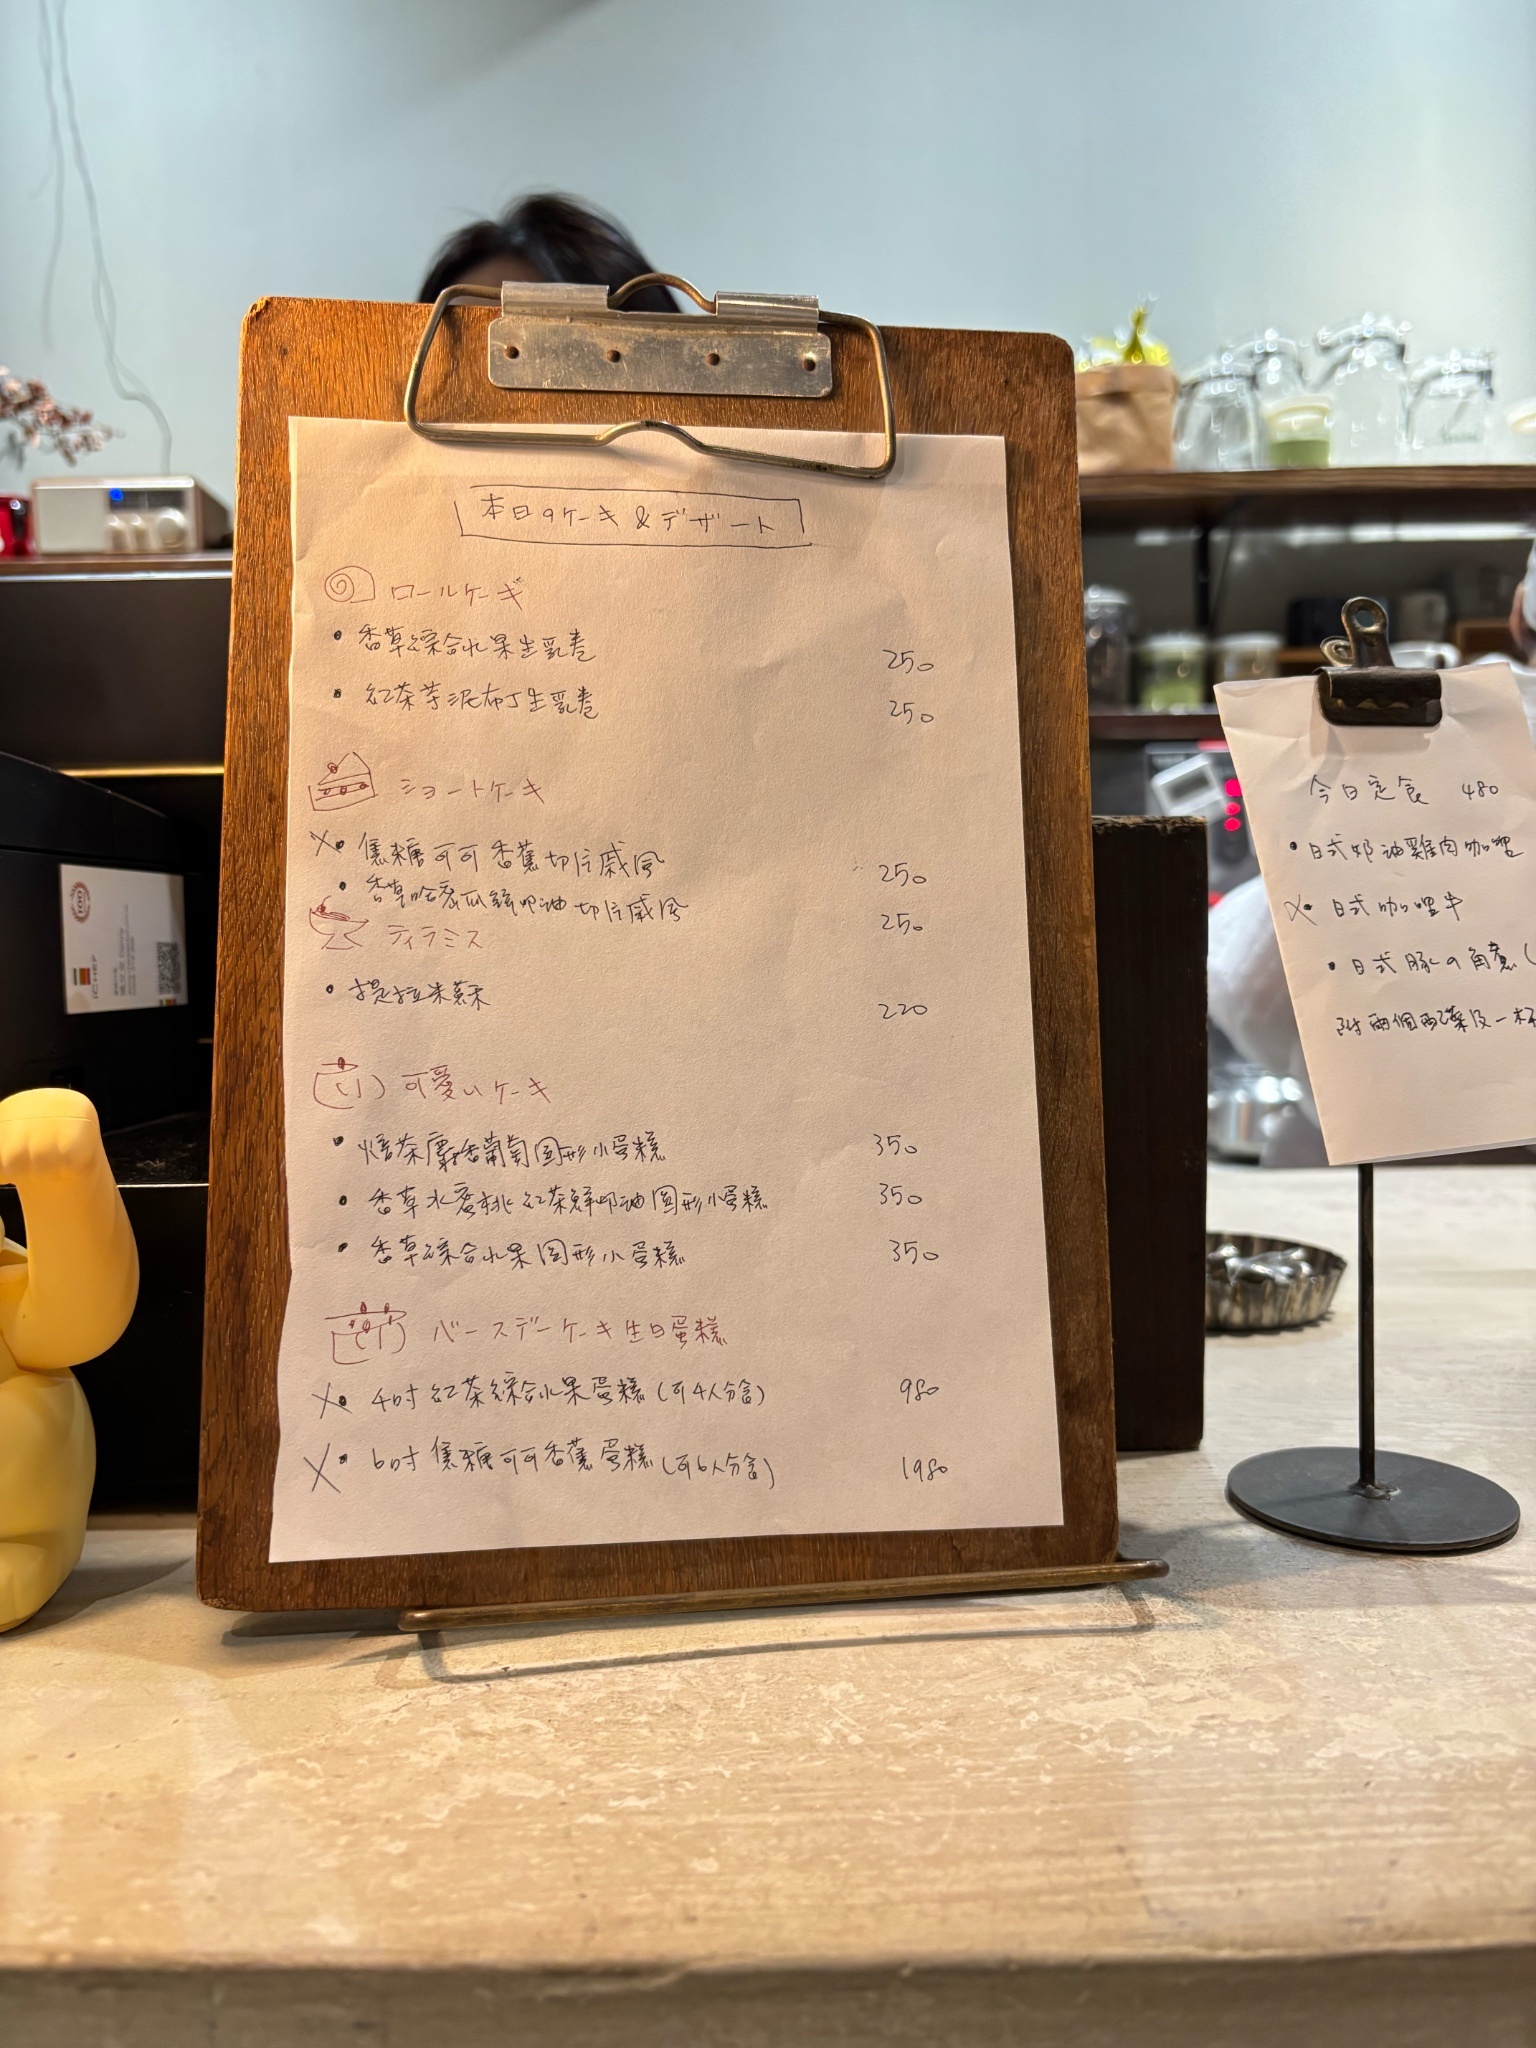 本日のケーキ&デザート
ロールケーキ
• 香草綜合水果生乳卷 250
• 紅茶芋泥布丁生乳卷 250
ショートケーキ
X• 焦糖可可香蕉切片戚風 250
• 香草哈蜜瓜鮮奶油切片戚風 250
ティラミス
• 提拉米蘇 220
可愛いケーキ
• 焙茶麝香葡萄圓形小蛋糕 350
• 香草水蜜桃紅茶鮮奶油圓形小蛋糕 350
• 香草綜合水果圓形小蛋糕 350
バースデーケーキ生日蛋糕
X• 4吋紅茶綜合水果蛋糕(可4人分食) 980
X• 6吋焦糖可可香蕉蛋糕(可6人分食) 1980
今日定食 480
• 日式奶油雞肉咖哩
X• 日式咖哩牛
• 日式豚の角煮(
附兩個配菜及一杯
iCHEF
100